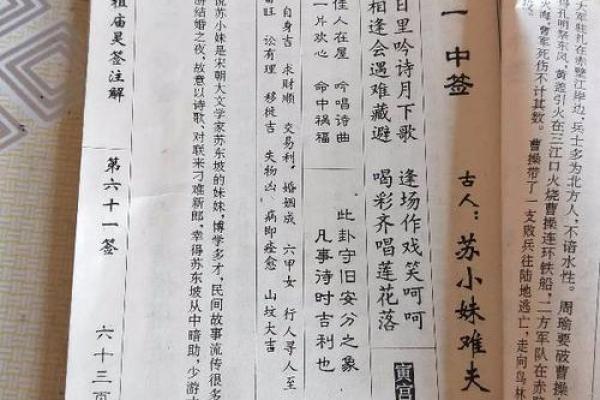 大军驻扎在赤壁江岸边，兵士多为北方人，不谙水性。周瑜要破曹操
得孔明祭东风，黄盖引火在三江口火烧曹操连环铁船，二方军队在赤壁
火海，曹军死伤不计其数。曹操带了一支败兵往陆地逃亡，走向乌林
一 中签 古人：苏小妹难夫
日里吟诗月下歌 逢场作戏笑呵呵
相逢会遇难藏避 喝彩齐唱莲花落
寅宫
佳人在屋 吟唱诗曲
一片欢心 命中祸福
此卦守旧安分之象
凡事待时吉利也
自身吉 求财顺 交易利，婚姻成 六甲女 行人寻人至
畜旺 讼有理 移徙吉 失物凶 病即痊愈 山坟大吉
说苏小妹是宋朝大文学家苏东坡的妹妹，博学多才，民间故事流传很
游结婚之夜，故意以诗歌、对联来刁难新郎，幸得苏东坡从中暗助，少游
祖庙灵签注解 第六十一签 六十三页